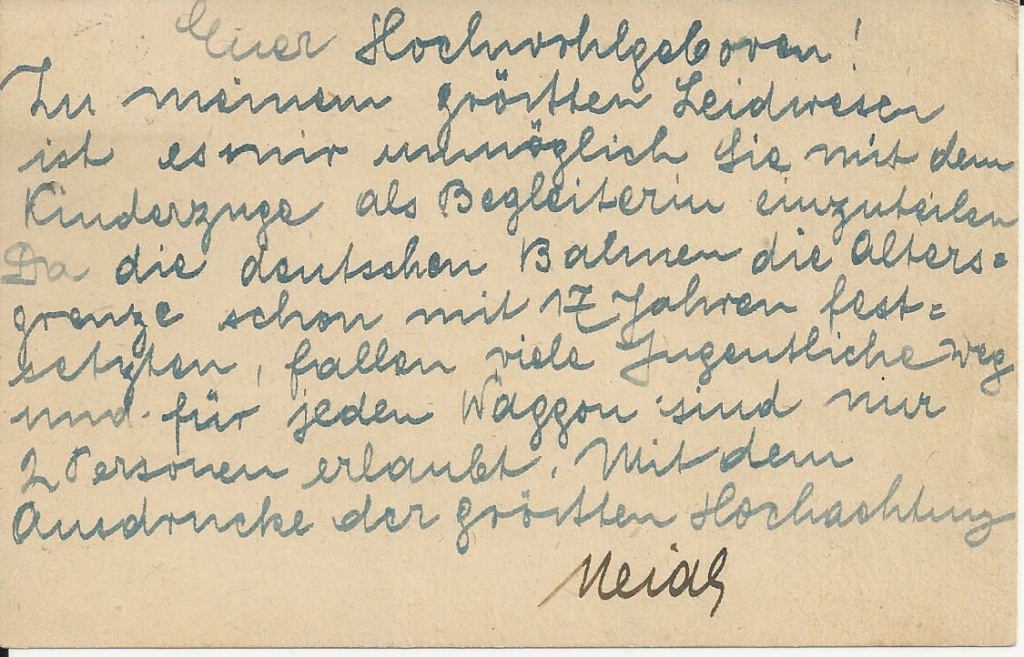 Euer Hochwohlgeboren!
Zu meinem größten Leidwesen
ist es mir unmöglich Sie mit dem
Kinderzuge als Begleiterin einzuteilen
Da die deutschen Bahnen die Alters=
grenze schon mit 17 Jahren fest=
setzten, fallen viele Jugentliche weg
und für jeden Waggon sind nur
2 Personen erlaubt. Mit dem
Ausdrucke der größten Hochachtung